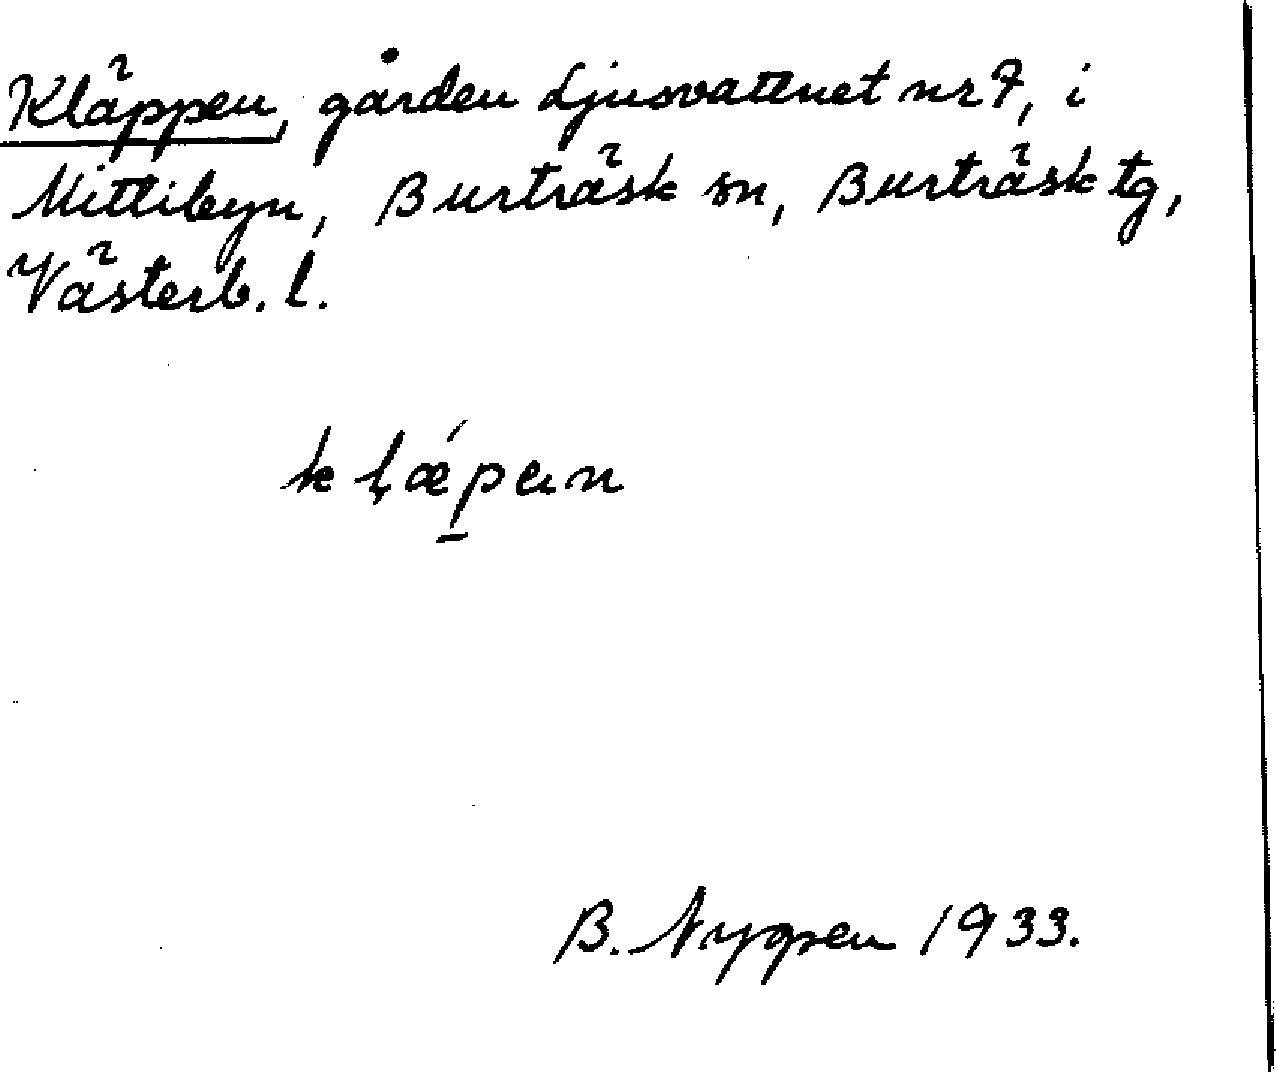 Kläppen, gården Ljusvattnet nr 7, i
Mittibyn, Burträsk sn, Burträsk tg,
Västerb. l.
kḷǽp̠en
B. Nygren 1933.